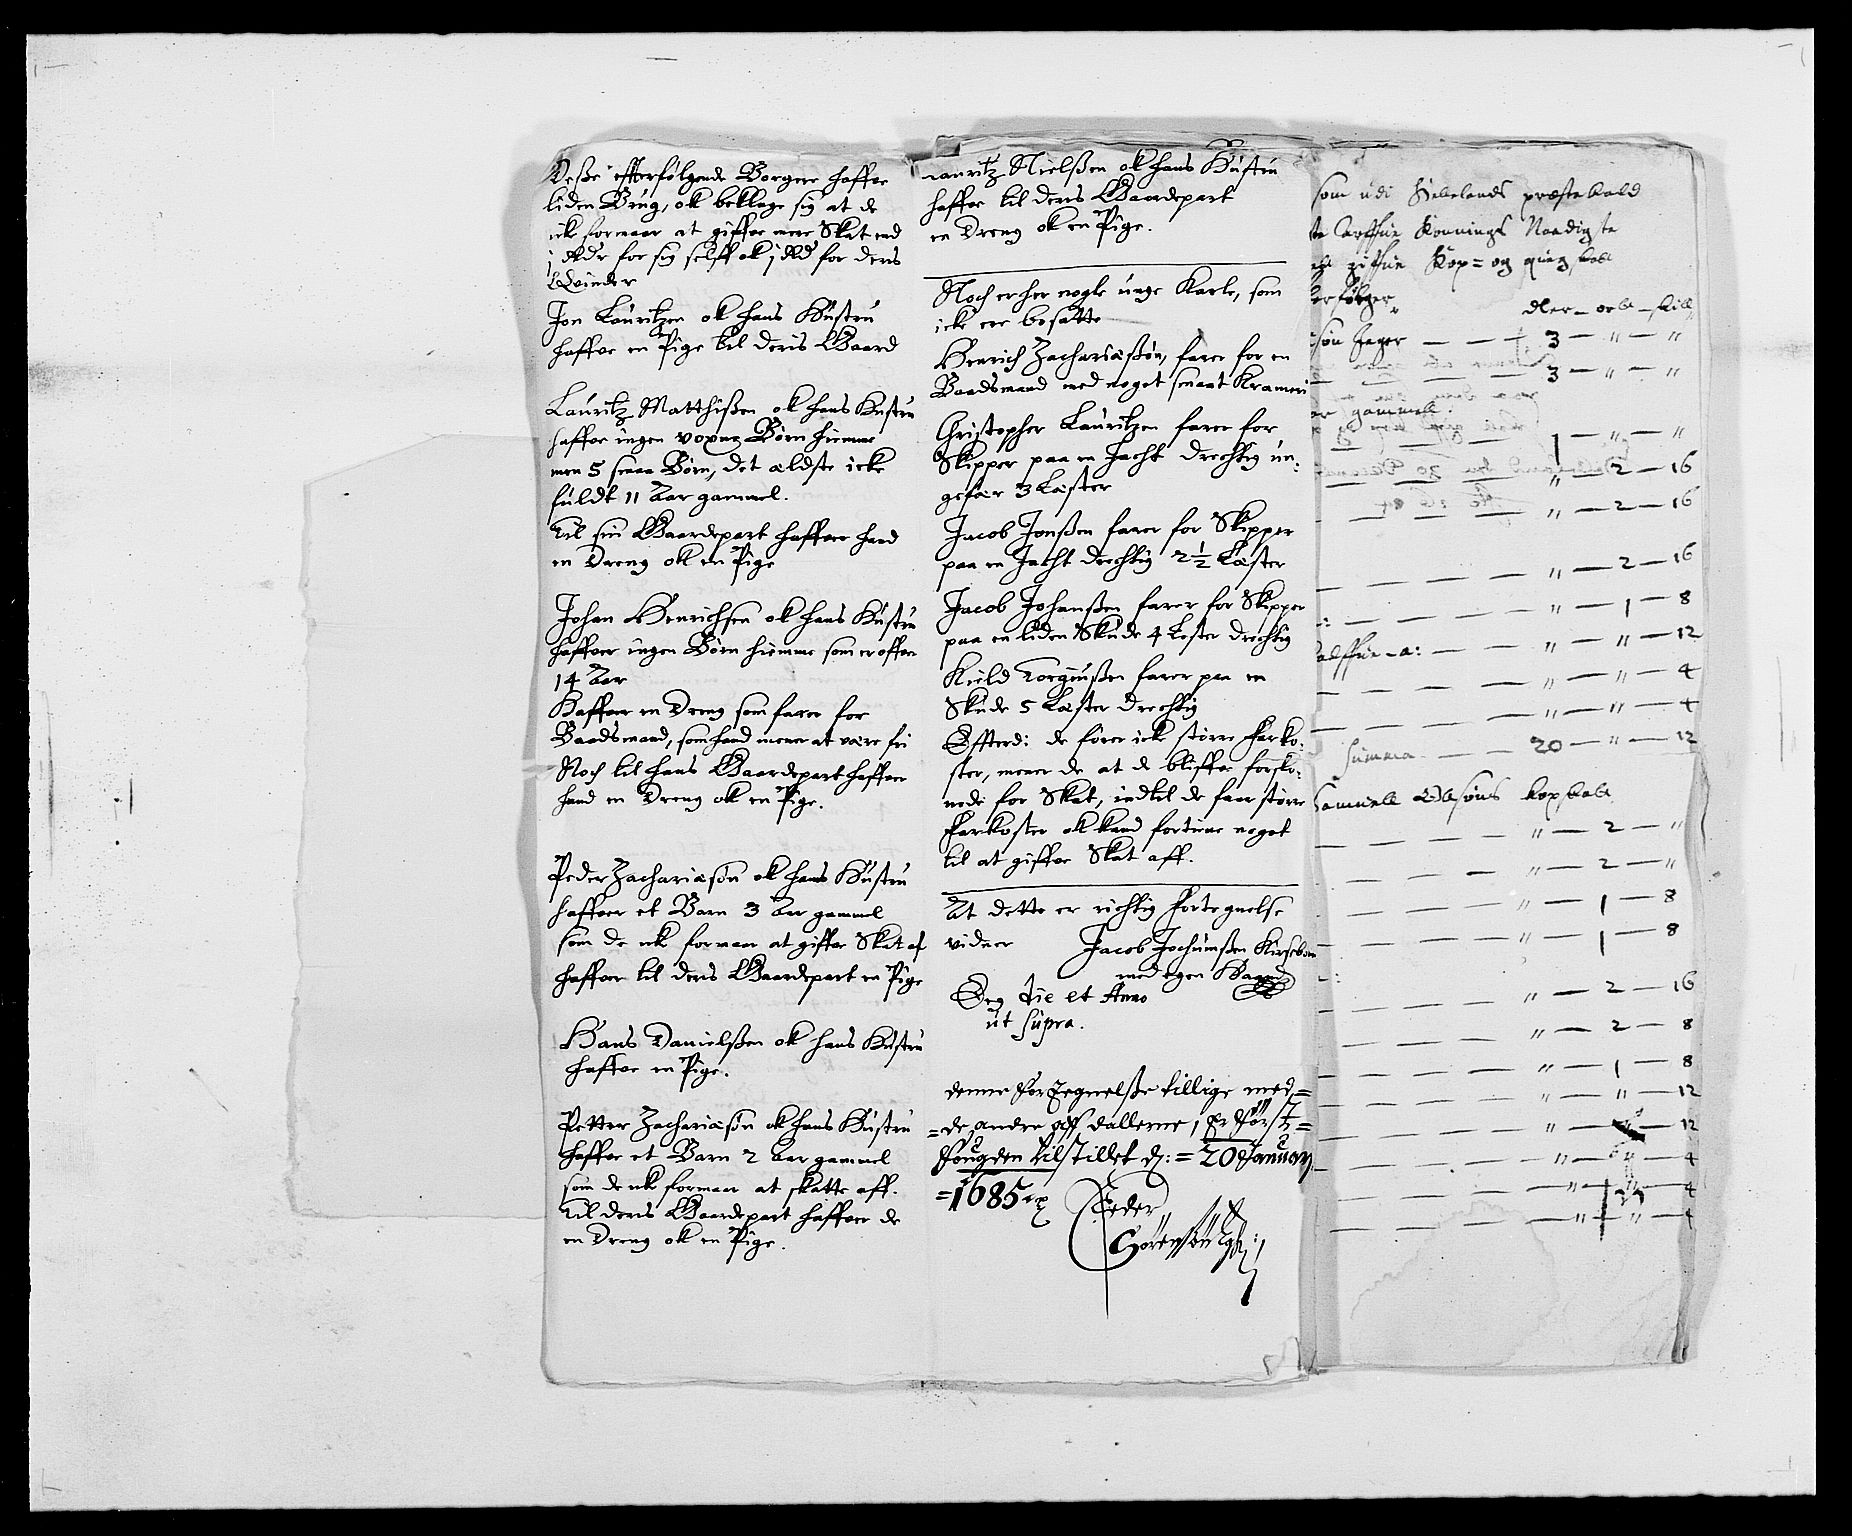 Desse effterfølgende Borgere haffve
liden Brug, ok beklage sig at de
ick formaar at giffve mere Skat end
j Rdr for sig selff ok j Rd for deris
Qvinder
Jon Lauritzen ok hans Hustru
haffve en Pige til deris Gaard
Lauritz Matthißen ok hans Hustru
haffver ingen voxne Børn hiemme
men 5 smaa Børn, det ældste icke
fuldt 11 Aar gammel.
Til sin Gaardepart haffver hand
en Dreng ok en Pige
Johan Henrichsen ok hans Hustru
haffver ingen Børn hiemme som er offver
14 Aar
Haffver en Dreng som farer for
Baadsmand, som hand mener at være fri
Noch til hans Gaardepart haffver
hand en Dreng ok en Pige.
Peder Zachariæsøn ok hans Hustru
haffver et Barn 3 Aar gammel
som de ick formaar at giffve Skat af
haffver til deris Gaardepart en Pige
Hans Danielßen ok hans Hustru
haffve en Pige.
Petter Zachariæsøn ok hans Hustru
haffve et Barn 2 Aar gammel
som de ick formaar at skatte aff.
Til deris Gaardepart haffver de
en Dreng ok en Pige.
Lauritz Nielßen ok hans Hustru
haffve til deris Gaardepart
en Dreng ok en Pige.
Noch er her nogle unge Karle, som
icke ere besatte
Henrich Zachariæßøn, farer for en
Baadsmand med noget smaat Krameri
Christopher Lauritzen farer for
Skipper paa en Jacht drechtig un:
gefær 3 Læster
Jacob Jonßen farer for Skipper
paa en Jacht drechtig 2½ Læster
Jacob Johanßen farer for Skipper
paa en liden Skude 4 Lester drechtig
Kield Torgiußen farer paa en
Skude 5 Læster drechtig
Effterdi de fører ick større Farko:
ster, mener de at de bliffve forsko:
nede for Skat, indtil de faar større
Farkoster ok kand fortiene noget
til at giffve Skat aff.
At dette er richtig Fortegnelse
vidner Jacob Jochumßen Kirsebom
med egen Haand
die et Anno
ut supra.
denne Fortegnelße tillige med =
= de andre aff dallerne, Er Først =
Fougden tilstillet d: = 20 Januarj
= 1685
Peder
Sørenßøn
som udi Hedelands præste kald
te Arffue Konnings Naadigste
giffue Kop= og qveg skatt
erfølger
dler - ort - skill
søn Jeger — — 3 — " — "
— 3 — " — "
er gammell
— 1 — " — "
— " — 2 — 16
— " — 2 — 16
— — — " — 2 — 16
— — — " — 1 — 8
— — " — " — 12
— — — " — " — 4
— — — " — " — 4
Summa — 20 — " — 12
Samuell Olsøns kopskatt
— — — " — 2 — "
— — — " — 2 — "
— — — " — 1 — 8
— — — " — 1 — 8
— — — " — 2 — 16
— — — " — 2 — 8
— — — " — 1 — 8
— — — " — " — 12
— — — " — 12
— — — " — " — 4
— — — " — " — 4
— — — " — " — 4